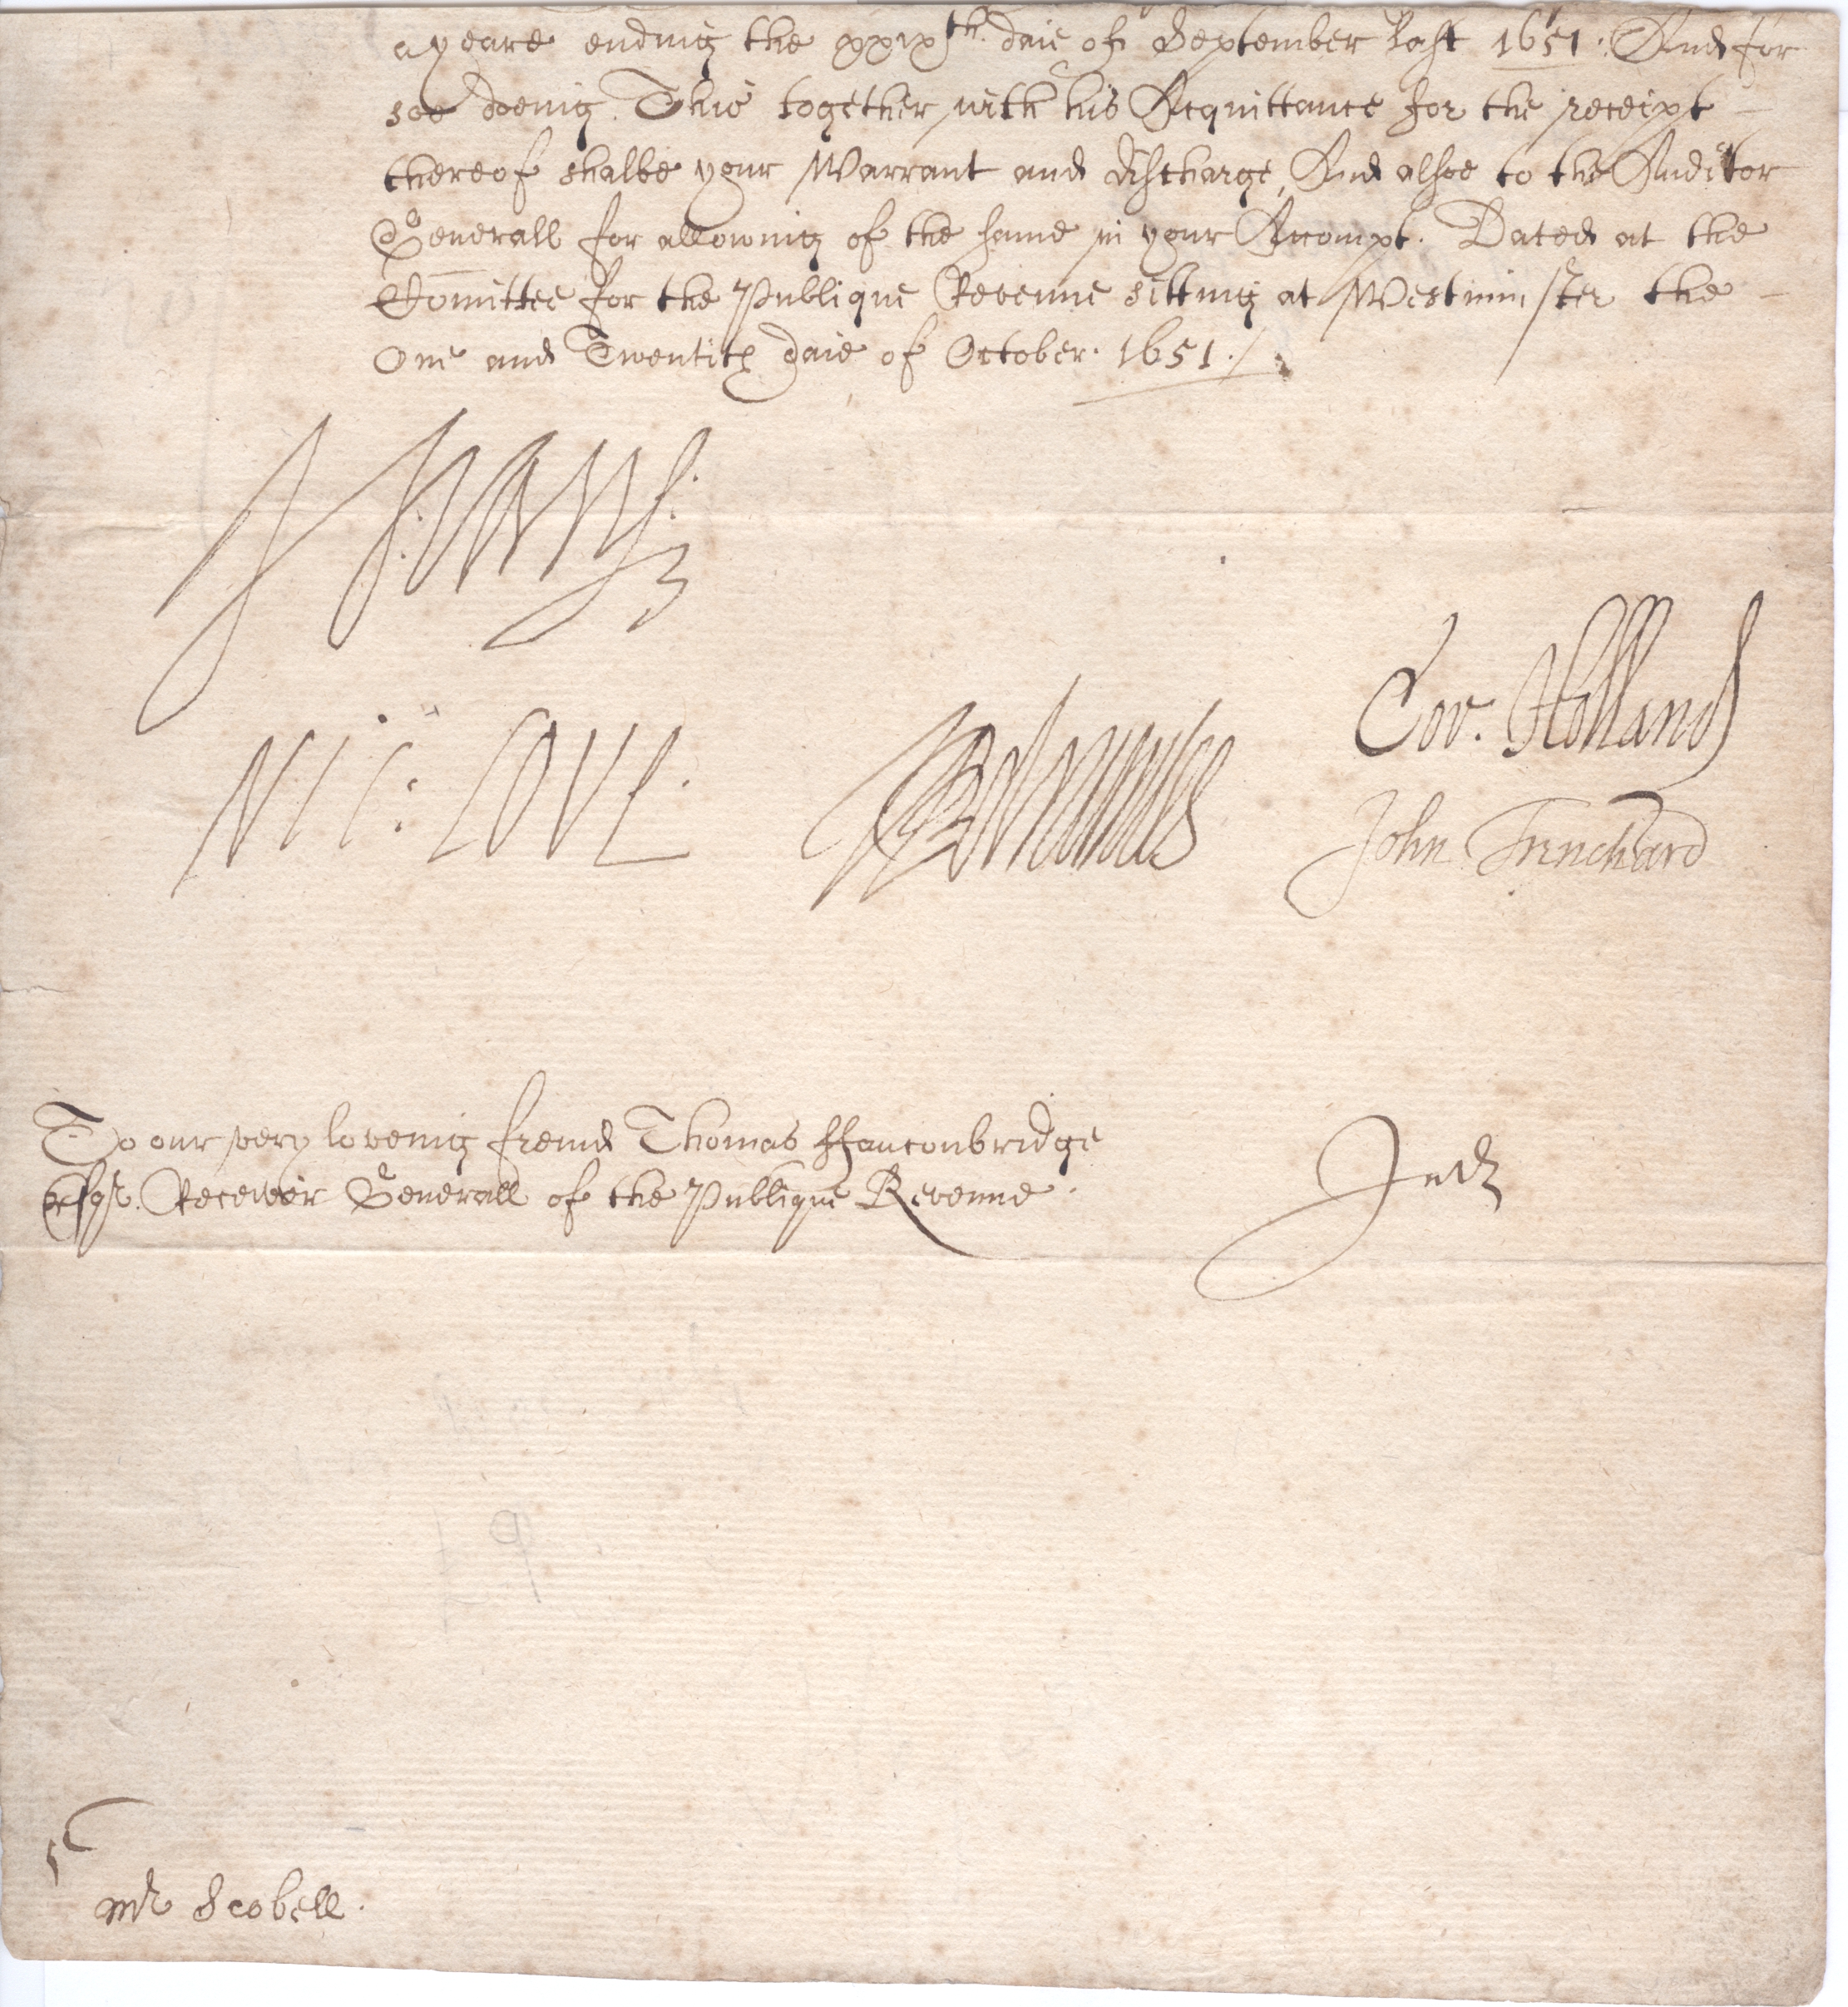 a yeare ending the xxixth. daie of September last 1651. And for
soe doeing. This together with his Acquittance for the receipt
thereof shalbe your Warrant and discharge, And alsoe to the Auditor
Generall for allowing of the same in your Accompt. Dated at the
Comittee for the Publique Revenue sitting at Westminster the
One and Twentith daie of October. 1651./.
H: VANE:
NIC: LOVE.
Cor. Holland
John Trenchard
To our very loveing freind Thomas ffauconbridge
Esqr. Receivor Generall of the Publique Revenue.
Mr Scobell.